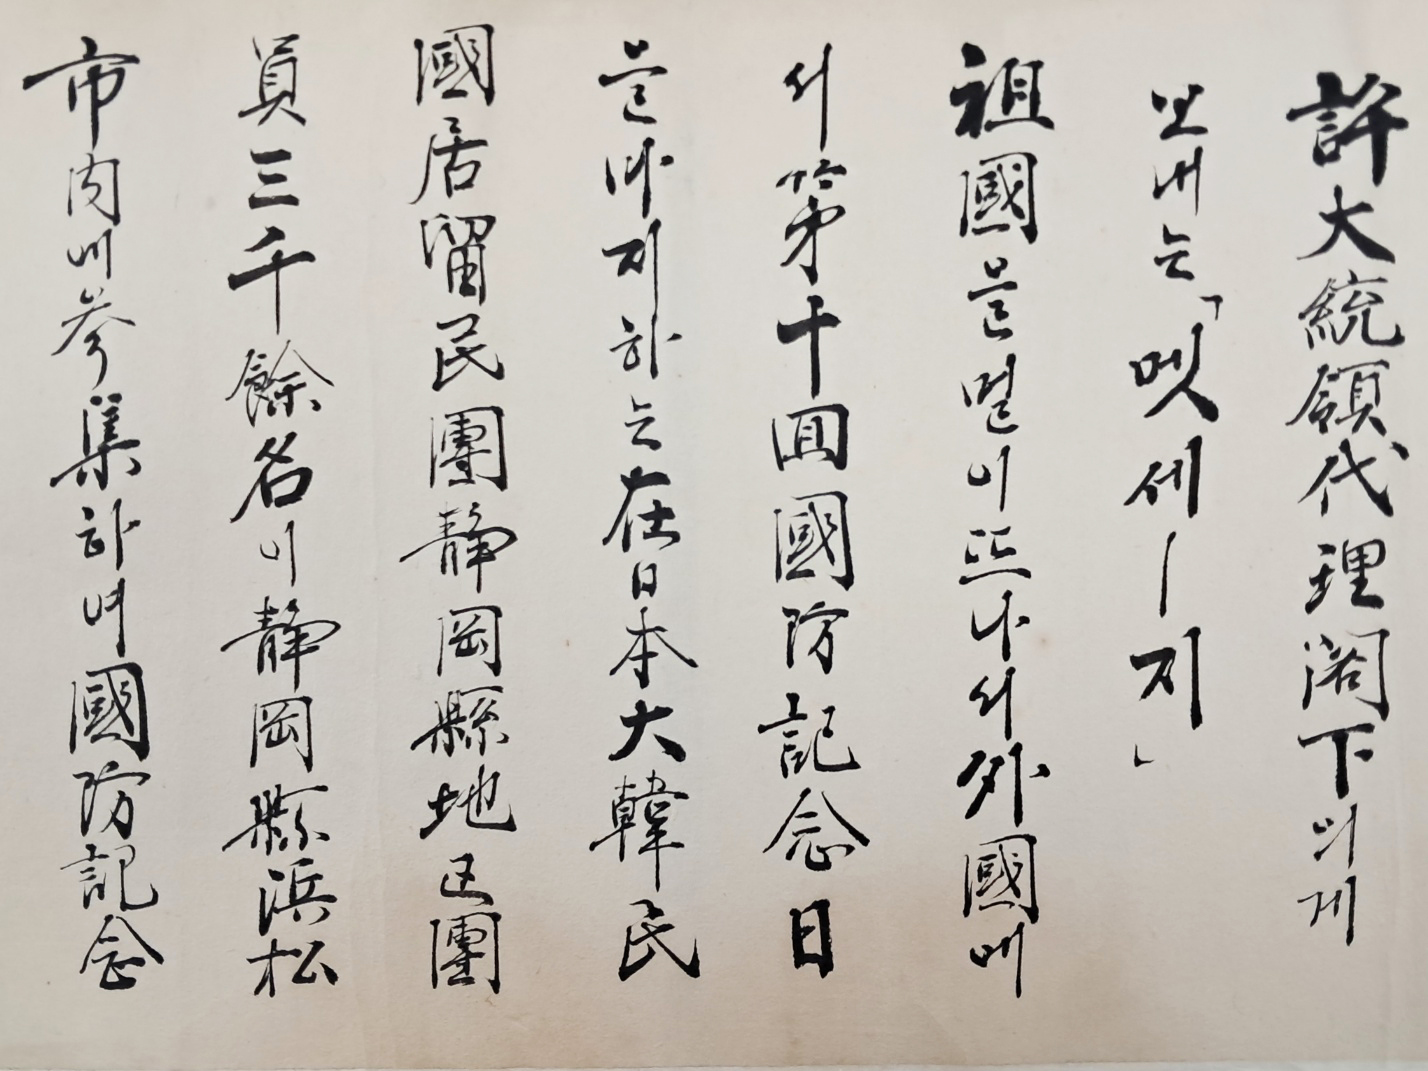 許大統領代理閣下의게
보내는「멧세ㅣ지」
祖國을멀이뜨나서外國에
서第十回國防記念日
을마지하는在日本大韓民
國居留民團静岡縣地区團
員三千餘名이静岡縣浜松
市内에參集하여國防記念